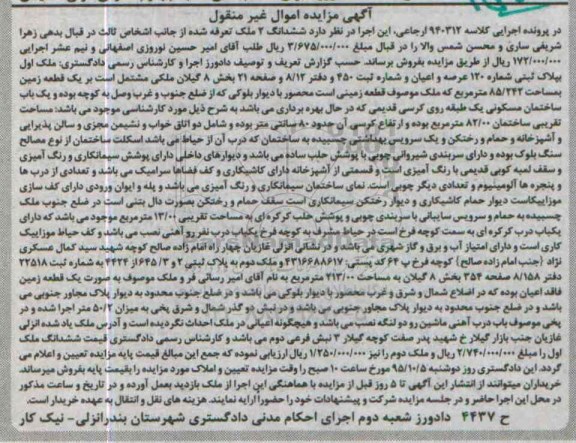 آگهی مزایده اموال غیر منقول
در پرونده اجرایی کلاسه ۹۴۰۳۱۲ ارجاعی، این اجرا در نظر دارد ششدانگ ۲ ملک تعرفه شده از جانب اشخاص ثالث در قبال بدهی زهرا
شریفی ساری و محسن شمس والا را در قبال مبلغ ۳/۶۷۵/۰۰۰/۰۰۰ ریال طلب آقای امیر حسین نوروزی اصفهانی و نیم عشر اجرایی
۱۷۲/۰۰۰/۰۰۰ ریال از طریق مزایده بفروش برساند. حسب گزارش تعریف و توصیف دادورز اجرا و کارشناس رسمی دادگستری: ملک اول
بپلاک ثبتی شماره ۱۲۰ عرصه و اعیان و شماره ثبت ۴۵۰ و دفتر ۸/۱۲ و صفحه ۲۱ بخش ۸ گیلان ملکی مشتمل است بر یک قطعه زمین
بمساحت ۸۵/۲۴۲ مترمربع که ملک موصوف قطعه زمینی است محصور با دیوار بلوکی که از ضلع جنوب و غرب وصل به کوچه بوده و یک باب
ساختمان مسکونی یک طبقه روی کرسی قدیمی که در حال بهره برداری می باشد به شرح ذیل مورد کارشناسی موجود می باشد: مساحت
تقریبی ساختمان ۸۲/۰۰ مترمربع بوده و ارتفاع کرسی آن حدود ۸۰ سانتی متر بوده و شامل دو اتاق خواب و نشیمن مجزی و سالن پذیرایی
و آشپزخانه و حمام و رختکن و یک سرویس بهداشتی چسبیده به ساختمان که درب آن از حیاط می باشد اسکلت ساختمان از نوع مصالح
سنگ بلوک بوده و دارای سربندی شیروانی چوبی با پوشش حلب ساده می باشد و دیوارهای داخلی دارای پوشش سیمانکاری و رنگ آمیزی
و سقف لمبه کوبی قدیمی با رنگ آمیزی است و قسمتی از آشپزخانه دارای کاشیکاری و کف فضاها سرامیک می باشد و تعدادی از درب ها
و پنجره ها آلومینیوم و تعدادی دیگر چوبی است. نمای ساختمان سیمانکاری و رنگ آمیزی می باشد و پله و ایوان ورودی دارای کف سازی
موزاییکاست دیوار حمام کاشیکاری و دیوار رختکن سیمانکاری است سقف حمام و رختکن بصورت دال بتنی است در ضلع جنوب ملک
چسبیده به حمام و سرویس سایبانی با سربندی چوبی و پوشش حلب کرکره ای به مساحت تقریبی ۱۳/۰۰ مترمربع موجود می باشد که دارای
یکباب درب کرکره ای به سمت کوچه فرخ است در حیاط مشرف به کوچه فرخ یکباب درب نفر رو آهنی نصب می باشد و کف حیاط موزاییک
کاری است و دارای امتیاز آب و برق و گاز شهری می باشد در نشانی انزلی غازیان چهارراه امام زاده صالح کوچه شهید سید کمال عسکری
نژاد (جنب امام زاده صالح) کوچه فرخ پ ۶۴ کد پستی: ۴۳۱۶۶۸۸۶۱۷ و ملک دوم به پلاک ثبتی ۲ و ۶۴۵/۳ از ۴۴۲۴ به شماره ثبت ۲۲۵۱۸
دفتر ۸/۱۵۸ صفحه ۳۵۴ بخش ۸ گیلان به مساحت ۲۱۳/۰۰ مترمربع به نام آقای امیر رسائی فر و ملک موصوف به صورت یک قطعه زمین
فاقد اعیان بوده که در اضلاع شمال و شرق و غرب محصور با دیوار بلوکی می باشد و در ضلع جنوب محدود به دیوار پلاک مجاور جنوبی می
باشد و در ضلع جنوب محدود به دیوار پلاک مجاور جنوبی می باشد و در نبش دو گذر شمال و شرق پخی به میزان ۵۰۲ متر اجرا شده و در
پخی موصوف باب درب آهنی ماشین رو دو لنگه نصب می باشد و هیچگونه اعیانی در ملک احداث نگردیده است و آدرس ملک یاد شده انزلی
غازیان جنب بازار گیلار خ شهید پدر صفت کوچه گیلار ۲ نبش فرعی دوم می باشد و کارشناس رسمی دادگستری قیمت ششدانگ ملک
اول را مبلغ ۲/۷۴۰/۰۰۰/۰۰۰ ریال و ملک دوم را نیز ۱/۲۵۰/۰۰۰/۰۰۰ ریال ارزیابی نموده که جمع این مبالغ قیمت پایه مزایده تعیین و اعلام می
گردد. این دادگستری روز دوشنبه ۹۵/۱۰/۵ مورخ ساعت ۱۰ صبح را وقت مزایده تعیین و املاک مورد مزایده را بقیمت پایه بفروش میرساند.
خریداران میتوانند از انتشار این آگهی تا ۵ روز قبل از مزایده با هماهنگی این اجرا از ملک بازدید بعمل آورده و در تاریخ و ساعت مذکور
در محل این اجرا حاضر و در جلسه مزایده شرکت و پیشنهادات خود را حضورا ارایه نمایند. هزینه های نقل و انتقال به عهده خریدار است.
ح ۴۴۳۷ دادورز شعبه دوم اجرای احکام مدنی دادگستری شهرستان بندرانزلی - نیک کار